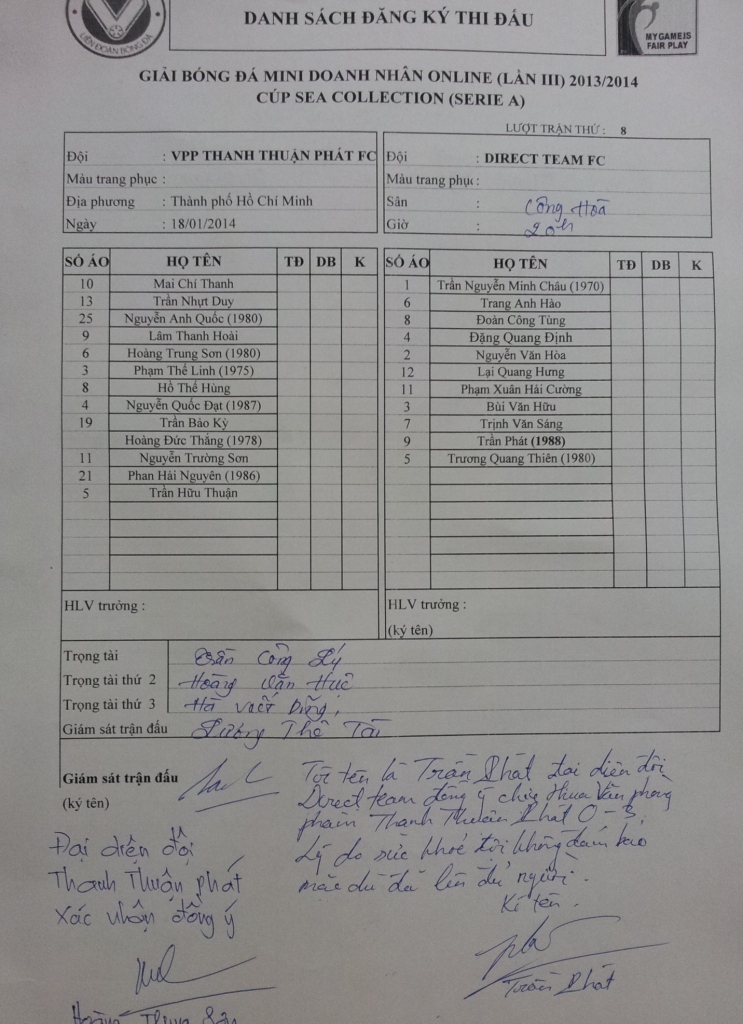 DANH SÁCH ĐĂNG KÝ THI ĐẤU
LIÊN ĐOÀN BÓNG ĐÁ
MYGAMEJS
FAIR PLAY
GIẢI BÓNG ĐÁ MINI DOANH NHÂN ONLINE (LẦN III) 2013/2014
CÚP SEA COLLECTION (SERIE A)
LƯỢT TRẬN THỨ : 8
Đội : VPP THANH THUẬN PHÁT FC
Màu trang phục :
Địa phương : Thành phố Hồ Chí Minh
Ngày : 18/01/2014
Đội : DIRECT TEAM FC
Màu trang phục :
Sân : Cộng Hoà
Giờ : 20h
SỐ ÁO HỌ TÊN TĐ DB K
10 Mai Chí Thanh
13 Trần Nhựt Duy
25 Nguyễn Anh Quốc (1980)
9 Lâm Thanh Hoài
6 Hoàng Trung Sơn (1980)
3 Phạm Thế Linh (1975)
8 Hồ Thế Hùng
4 Nguyễn Quốc Đạt (1987)
19 Trần Bảo Kỳ
Hoàng Đức Thắng (1978)
11 Nguyễn Trường Sơn
21 Phan Hải Nguyên (1986)
5 Trần Hữu Thuận
HLV trưởng :
SỐ ÁO HỌ TÊN TĐ DB K
1 Trần Nguyễn Minh Châu (1970)
6 Trang Anh Hào
8 Đoàn Công Tùng
4 Đặng Quang Định
2 Nguyễn Văn Hòa
12 Lại Quang Hưng
11 Phạm Xuân Hải Cường
3 Bùi Văn Hữu
7 Trịnh Văn Sáng
9 Trần Phát (1988)
5 Trương Quang Thiên (1980)
HLV trưởng :
(ký tên)
Trọng tài Trần Công Lý
Trọng tài thứ 2 Hoàng Văn Hục
Trọng tài thứ 3 Hà Việt Dũng
Giám sát trận đấu Lương Thế Tài
Giám sát trận đấu
(ký tên)
Tôi tên là Trần Phát đại diện đội
Direct team đồng ý chịu thua Văn phòng
phẩm Thanh Thuận Phát 0-3.
Lý do sức khoẻ đội không đảm bảo
mặc dù đã lên đủ người.
Kí tên.
Trần Phát
Đại diện đội
Thanh Thuận phát
Xác nhận đồng ý
Hoàng Trung Sơn